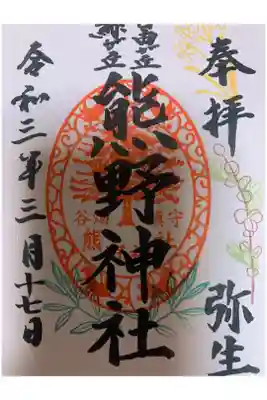 奉拝
弥生
熊野神社
令和三年三月十七日